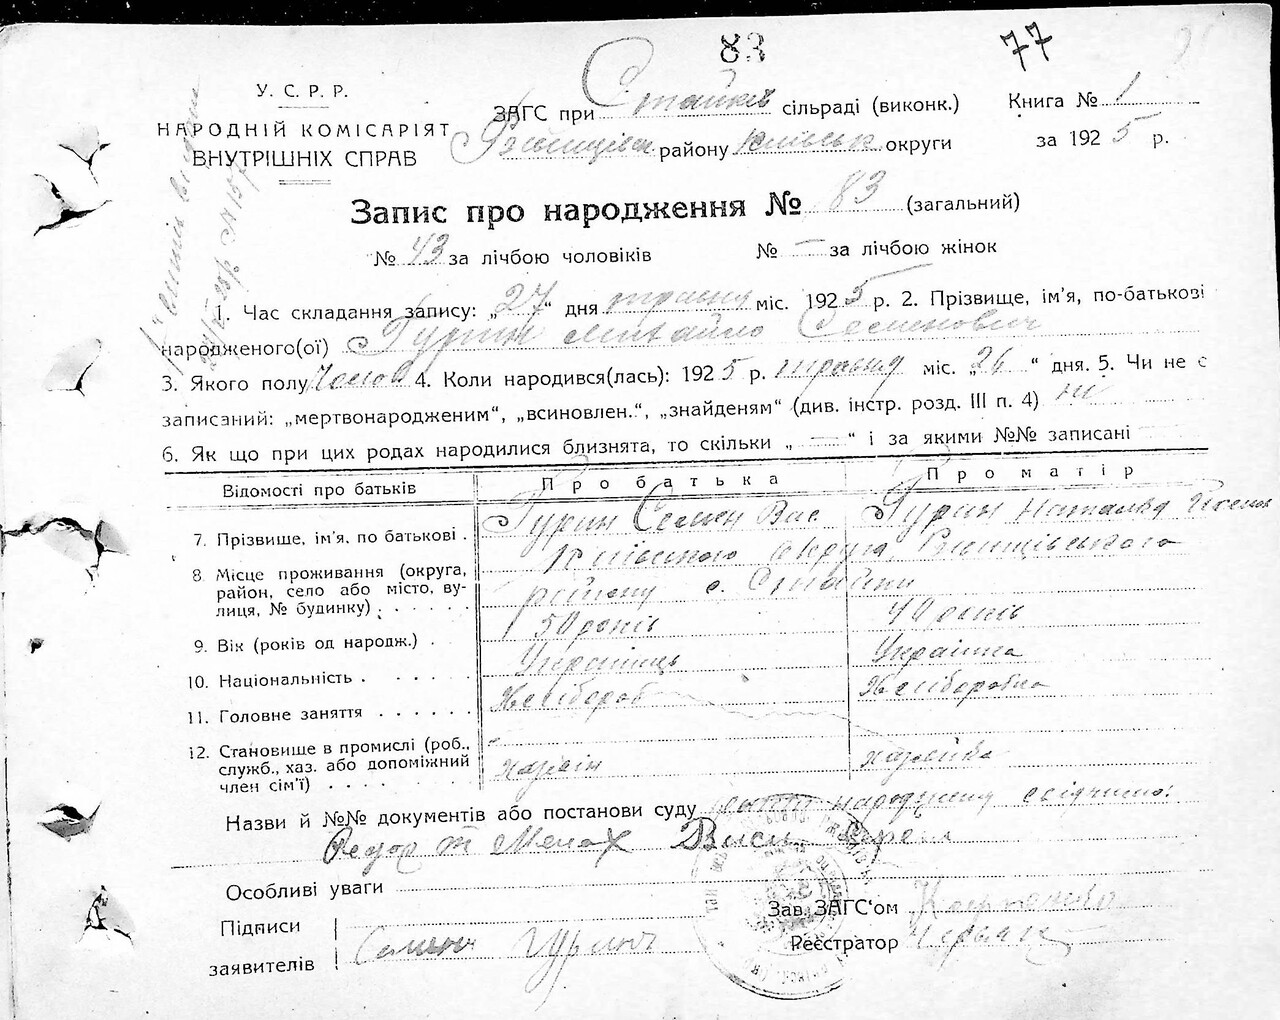 83
77
У. С. Р. Р.
НАРОДНІЙ КОМІСАРІЯТ
ВНУТРІШНІХ СПРАВ
ЗАГС при Стайках сільраді (виконк.)
району Київськ округи
Книга № 1
за 1925 р.
Запис про народження № 83 (загальний)
№ 43 за лічбою чоловіків № — за лічбою жінок
1. Час складання запису: „27“ дня травня міс. 1925 р. 2. Прізвище, ім'я, по-батькові
народженого(ої) Гурин Михайло Семенович
3. Якого полу Чолов 4. Коли народився(лась): 1925 р. травня міс. „26“ дня. 5. Чи не є
записаний: „мертвонародженим“, „всиновлен.“, „знайденям“ (див. інстр. розд. III п. 4) ні
6. Як що при цих родах народилися близнята, то скільки „ — “ і за якими №№ записані —
Відомості про батьків
Про батька
Про матір
7. Прізвище, ім'я, по батькові . Гурин Семен Вас Гурин Наталья
8 Місце проживання (округа, район, село або місто, вулиця, № будинку) . . . . . Київської округи, Ржищівського
району с. Стайки
9. Вік (років од народж.) . 50 років 40 років
10. Національність . . . . . . Українець Українка
11. Головне заняття . . . . . . Хлібороб Хліборобка
12. Становище в промислі (роб., служб., хаз. або допоміжний член сім'ї) . . . . хазяїн хазяйка
Назви й №№ документів або постанови суду
Федор
Особливі уваги
Підписи
заявителів
Семен Гурин
Зав. ЗАГС'ом
Реєстратор